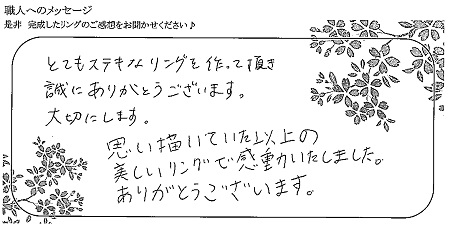 職人へのメッセージ
是非 完成したリングのご感想をお聞かせください♪
とてもステキなリングを作って頂き
誠にありがとうございます。
大切にします。
思い描いていた以上の
美しいリングで感動いたしました。
ありがとうございます。